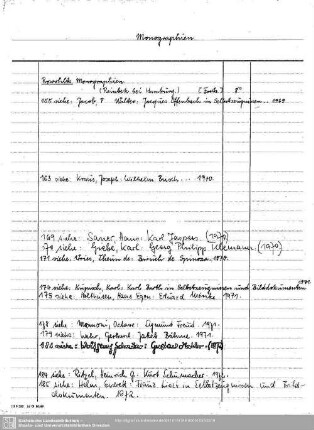 Monographien
Rowohlts Monographien
(Reinbek bei Hamburg.) (Erste) 8°
155 siehe: Jacob, P. Walter: Jacques Offenbach in Selbstzeugnissen... 1969
163 siehe: Kraus, Joseph: Wilhelm Busch... 1970.
169 siehe: Saner, Hans: Karl Jaspers. (1970)
170 siehe: Grebe, Karl: Georg Philipp Telemann. (1970)
171 siehe: Vries, Theun de: Baruch de Spinoza. 1970.
174 siehe: Kupisch, Karl: Karl Barth in Selbstzeugnissen und Bilddokumenten 1971.
175 siehe: Holthusen, Hans Egon: Eduard Mörike 1971.
178 siehe: Mannoni, Octave: Sigmund Freud. 1971.
179 siehe: Wehr, Gerhard: Jakob Böhme. 1971.
184 siehe: Ritzel, Heinrich G.: Kurt Schumacher. 1972.
185 siehe: Helm, Everett: Franz Liszt in Selbstzeugnissen und Bild-
dokumenten. 1972.